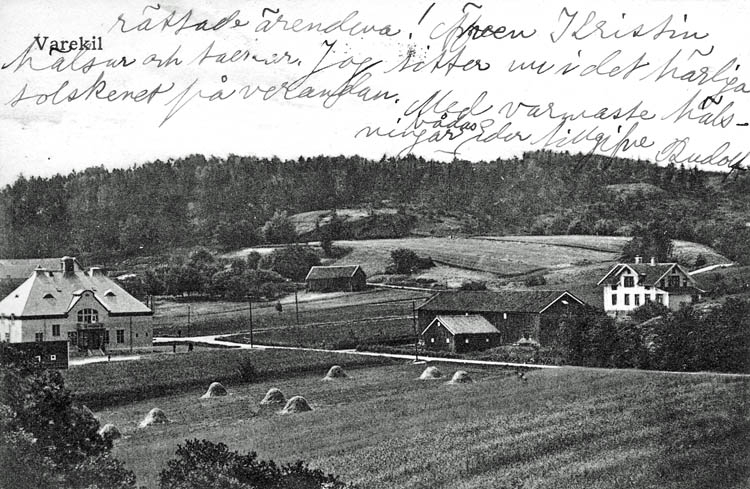 Varekil
rättade ärendena! Även Kristin
hälsar och tackar. Jag sitter nu i det härliga
solskenet på verandan. Med varmaste häls-
ningar bådas Eder tillgifne Rudolf